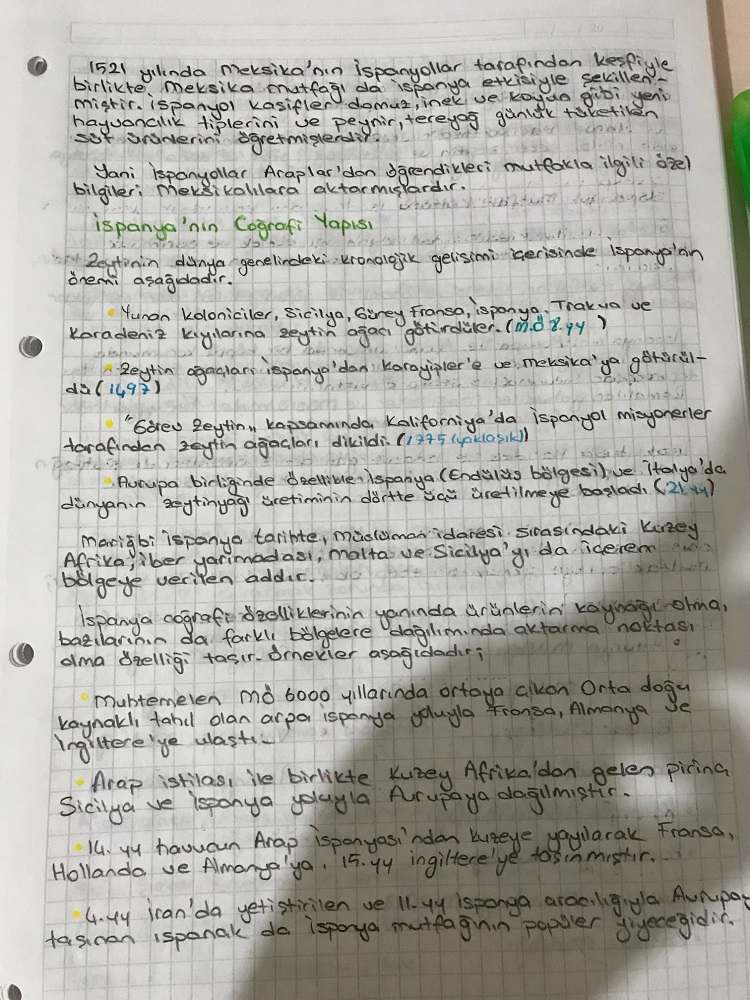 1521 yılında Meksika'nın İspanyollar tarafından keşfiyle
birlikte, Meksika mutfağı da ispanya etkisiyle şekillen-
miştir. İspanyol kaşifler domuz, inek ve koyun gibi yeni
hayvancılık tiplerini ve peynir, tereyağ günlük tüketilen
süt ürünlerini öğretmişlerdir.
Yani İspanyollar Araplar'dan öğrendikleri mutfakla ilgili özel
bilgileri Meksikalılara aktarmışlardır.
İspanya'nın Coğrafi Yapısı
Zeytinin dünya genelindeki kronolojik gelişimi içerisinde İspanya'nın
önemi aşağıdadır.
• Yunan koloniciler, Sicilya, Güney Fransa, İspanya, Trakya ve
Karadeniz kıyılarına zeytin ağacı götürdüler. (M.Ö 8.yy )
• Zeytin ağaçları İspanya'dan Karayipler'e ve Meksika'ya götürül-
dü (1497)
• "Görev Zeytin" kapsamında Kaliforniya'da İspanyol misyonerler
tarafından zeytin ağaçları dikildi. (1775 (yaklaşık))
• Avrupa birliğinde özellikle İspanya (Endülüs bölgesi) ve İtalya'da
dünyanın zeytinyağı üretiminin dörtte üçü üretilmeye başladı. (21.yy)
Mariğbi İspanya tarihte, müslüman idaresi sırasındaki Kuzey
Afrika, iber yarımadası, Malta ve Sicilya'yı da içeren
bölgeye verilen addır.
İspanya coğrafi özelliklerinin yanında ürünlerin kaynağı olma,
bazılarının da farklı bölgelere dağılımında aktarma noktası
olma özelliği taşır. Örnekler aşağıdadır;
• Muhtemelen MÖ 6000 yıllarında ortaya çıkan Orta doğu
kaynaklı tahıl olan arpa ispanya yoluyla Fransa, Almanya ve
İngiltere'ye ulaştı.
• Arap istilası ile birlikte Kuzey Afrika'dan gelen pirinç
Sicilya ve ispanya yoluyla Avrupaya dağılmıştır.
• 14. yy havucun Arap İspanyası'ndan kuzeye yayılarak Fransa,
Hollanda ve Almanya'ya, 15.yy ingiltere'ye taşınmıştır.
• 4.yy İran'da yetiştirilen ve 11.yy İspanya aracılığıyla Avrupay
taşınan ıspanak da İspanya mutfağının popüler yiyeceğidir.